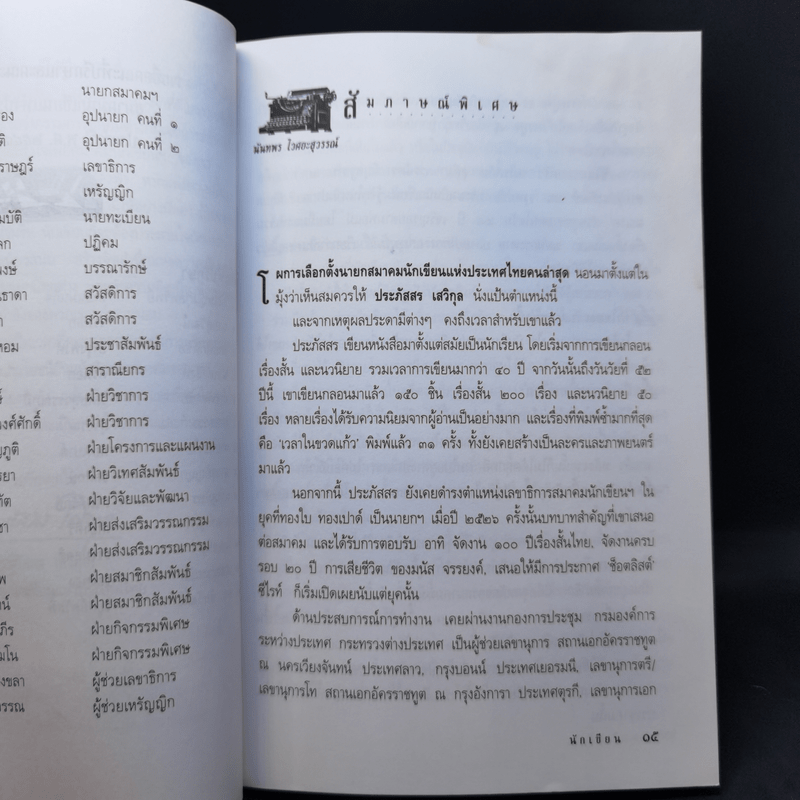 นายกสมาคมฯ
อุปนายก คนที่ ๑
อุปนายก คนที่ ๒
ราษฎร์ เลขาธิการ
เหรัญญิก
นายทะเบียน
ปฏิคม
บรรณารักษ์
สวัสดิการ
สวัสดิการ
ประชาสัมพันธ์
สาราณียกร
ฝ่ายวิชาการ
ฝ่ายวิชาการ
ฝ่ายโครงการและแผนงาน
ฝ่ายวิเทศสัมพันธ์
ฝ่ายวิจัยและพัฒนา
ฝ่ายส่งเสริมวรรณกรรม
ฝ่ายส่งเสริมวรรณกรรม
ฝ่ายสมาชิกสัมพันธ์
ฝ่ายสมาชิกสัมพันธ์
ฝ่ายกิจกรรมพิเศษ
ฝ่ายกิจกรรมพิเศษ
ผู้ช่วยเลขาธิการ
ผู้ช่วยเหรัญญิก
สัมภาษณ์พิเศษ
นันทพร ไวศยะสุวรรณ์
โผการเลือกตั้งนายกสมาคมนักเขียนแห่งประเทศไทยคนล่าสุด นอนมาตั้งแต่ใน
มุ้งว่าเห็นสมควรให้ ประภัสสร เสวิกุล นั่งแป้นตำแหน่งนี้
และจากเหตุผลประดามีต่างๆ คงถึงเวลาสำหรับเขาแล้ว
ประภัสสร เขียนหนังสือมาตั้งแต่สมัยเป็นนักเรียน โดยเริ่มจากการเขียนกลอน
เรื่องสั้น และนวนิยาย รวมเวลาการเขียนมากว่า ๔๐ ปี จากวันนั้นถึงวันวัยที่ ๕๒
ปีนี้ เขาเขียนกลอนมาแล้ว ๑๕๐ ชิ้น เรื่องสั้น ๒๐๐ เรื่อง และนวนิยาย ๕๐
เรื่อง หลายเรื่องได้รับความนิยมจากผู้อ่านเป็นอย่างมาก และเรื่องที่พิมพ์ซ้ำมากที่สุด
คือ ‘เวลาในขวดแก้ว’ พิมพ์แล้ว ๓๑ ครั้ง ทั้งยังเคยสร้างเป็นละครและภาพยนตร์
มาแล้ว
นอกจากนี้ ประภัสสร ยังเคยดำรงตำแหน่งเลขาธิการสมาคมนักเขียนฯ ใน
ยุคที่ทองใบ ทองเปาด์ เป็นนายกฯ เมื่อปี ๒๕๒๖ ครั้งนั้นบทบาทสำคัญที่เขาเสนอ
ต่อสมาคม และได้รับการตอบรับ อาทิ จัดงาน ๑๐๐ ปีเรื่องสั้นไทย, จัดงานครบ
รอบ ๒๐ ปี การเสียชีวิต ของมนัส จรรยงค์, เสนอให้มีการประกาศ ‘ช็อตลิสต์’
ซีไรท์ ก็เริ่มเปิดเผยนับแต่ยุคนั้น
ด้านประสบการณ์การทำงาน เคยผ่านงานกองการประชุม กรมองค์การ
ระหว่างประเทศ กระทรวงต่างประเทศ เป็นผู้ช่วยเลขานุการ สถานเอกอัครราชทูต
ณ นครเวียงจันทน์ ประเทศลาว, กรุงบอนน์ ประเทศเยอรมนี, เลขานุการตรี/
เลขานุการโท สถานเอกอัครราชทูต ณ กรุงอังการา ประเทศตุรกี, เลขานุการเอก
นักเขียน ๐๕